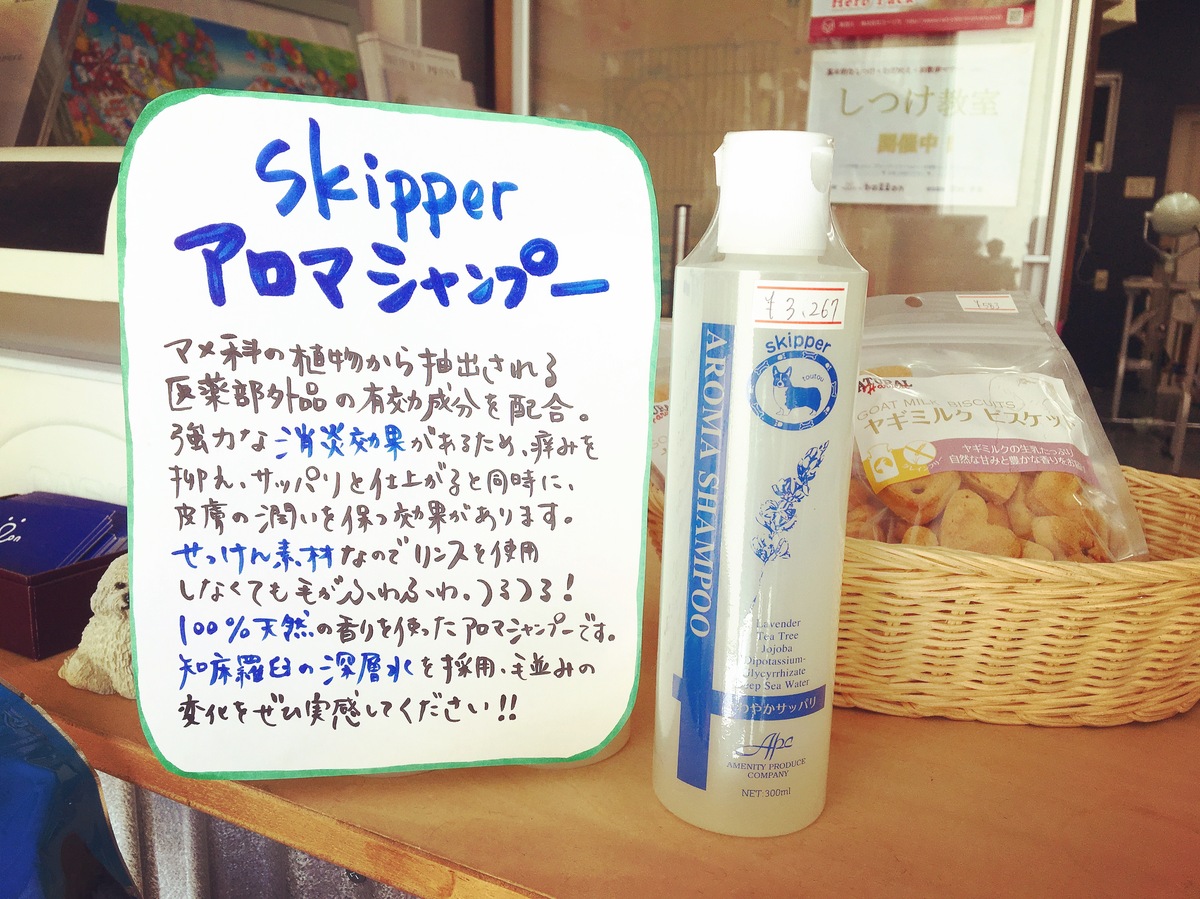 skipper
アロマシャンプー
マメ科の植物から抽出される
医薬部外品の有効成分を配合。
強力な消炎効果があるため、痒みを
抑え、サッパリと仕上がると同時に、
皮膚の潤いを保つ効果があります。
せっけん素材なのでリンスを使用
しなくても毛がふわふわ。つるつる!
100%天然の香りを使ったアロマシャンプーです。
知床羅臼の深層水を採用、毛並みの
変化をぜひ実感してください!!
¥3,267
skipper
AROMA SHAMPOO
Lavender
Tea Tree
Jojoba
Dipotassium-
Glycyrrhizate
Deep Sea Water
やかサッパリ
Apc
AMENITY PRODUCE
COMPANY
NET 300ml
しつけ教室
開催中
GOAT MILK BISCUITS
ヤギミルク ビスケット
ヤギミルクの生乳たっぷり
自然な甘みと豊かな香りを